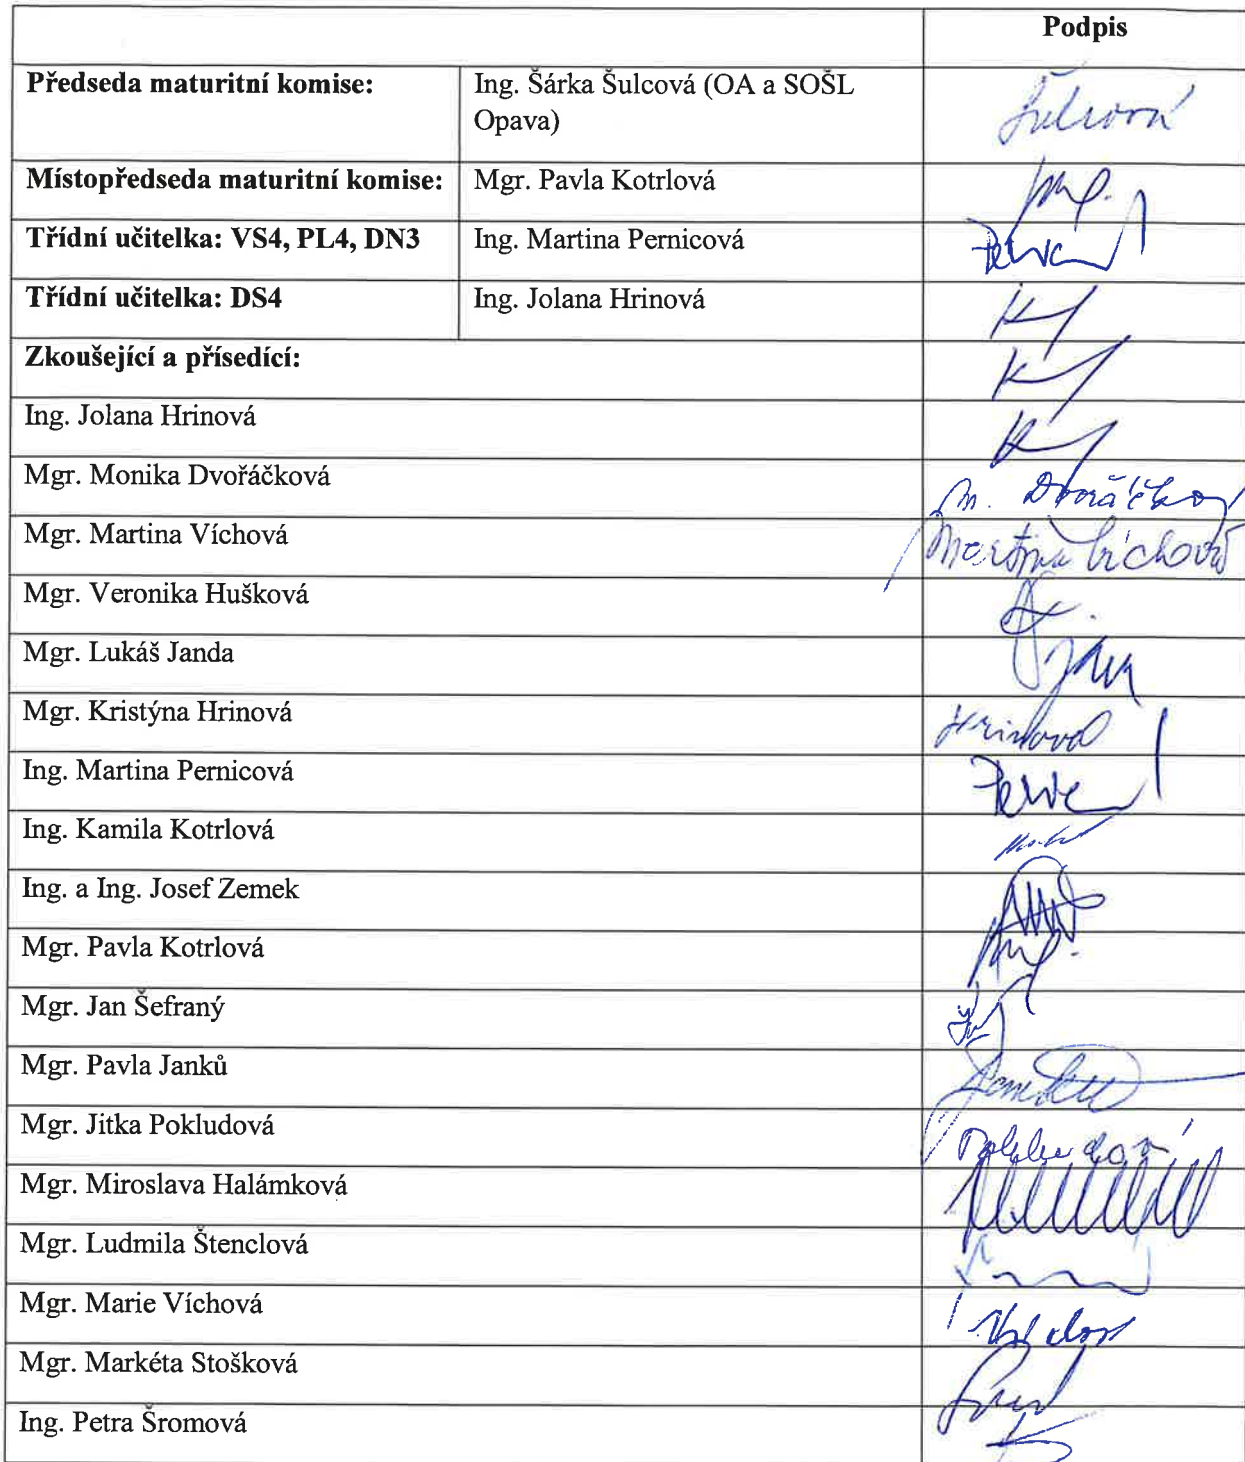 Podpis
Předseda maturitní komise: Ing. Šárka Šulcová (OA a SOŠL
Opava) Šulcová
Místopředseda maturitní komise: Mgr. Pavla Kotrlová
Třídní učitelka: VS4, PL4, DN3 Ing. Martina Pernicová
Třídní učitelka: DS4 Ing. Jolana Hrinová
Zkoušející a přísedící:
Ing. Jolana Hrinová
Mgr. Monika Dvořáčková M. Dvořáčkov
Mgr. Martina Víchová Martina Víchová
Mgr. Veronika Hušková
Mgr. Lukáš Janda
Mgr. Kristýna Hrinová Hrinová
Ing. Martina Pernicová
Ing. Kamila Kotrlová
Ing. a Ing. Josef Zemek
Mgr. Pavla Kotrlová
Mgr. Jan Šefraný
Mgr. Pavla Janků
Mgr. Jitka Pokludová Pokludová
Mgr. Miroslava Halámková
Mgr. Ludmila Štenclová
Mgr. Marie Víchová
Mgr. Markéta Stošková
Ing. Petra Šromová